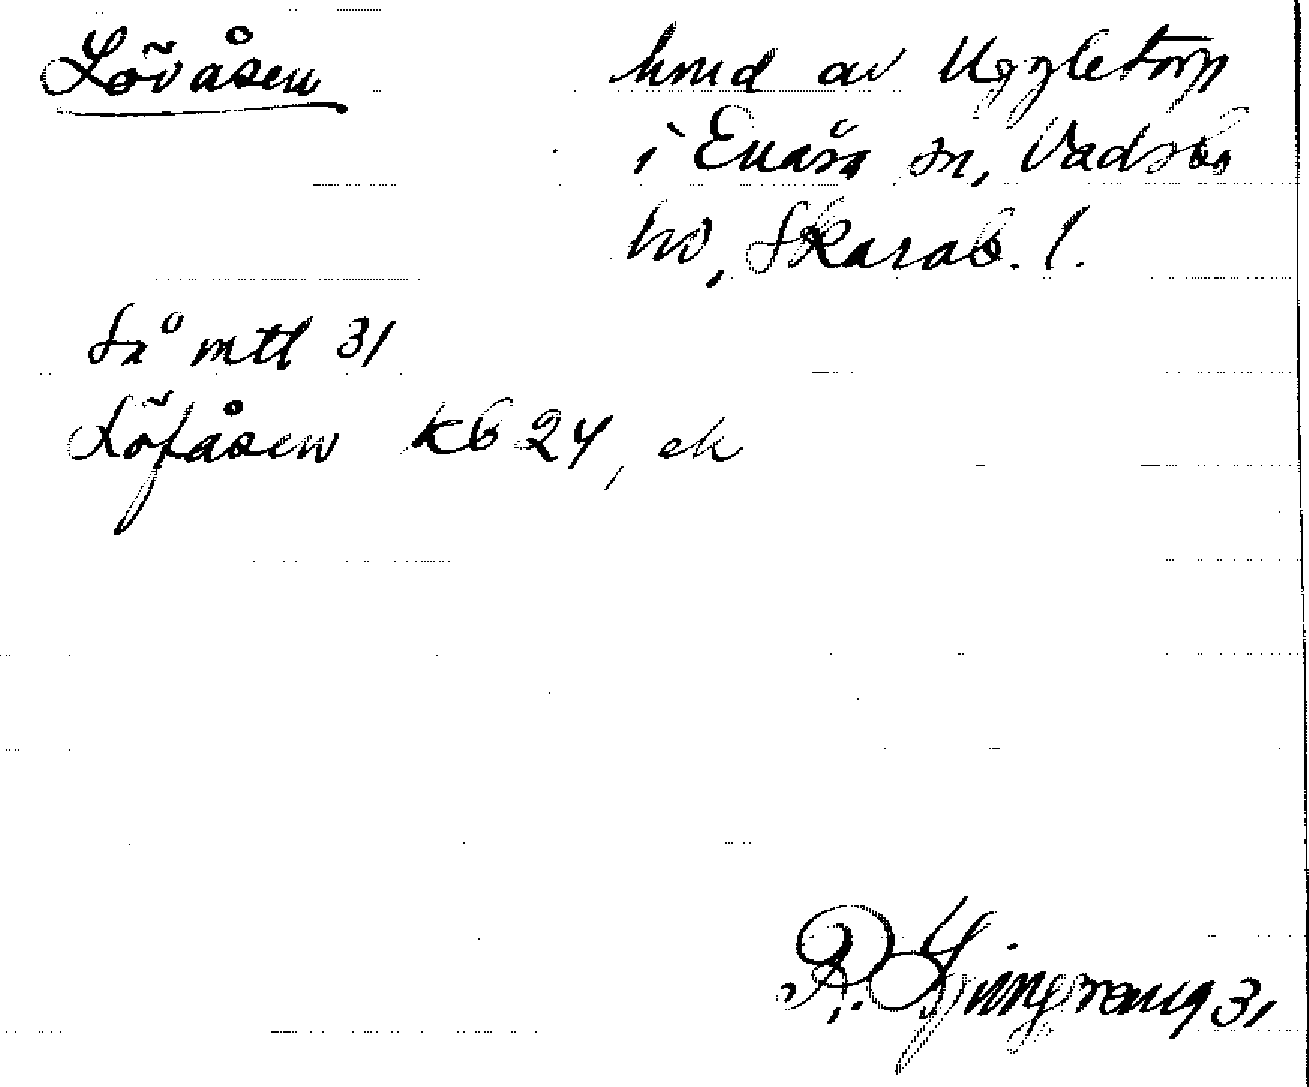 Lövåsen hmd av Uggletorp
i Enåsa sn, Vadsbo
hd, Skarab. l.
Så mtl 31
Löfåsen kb 24, ek
R. 31